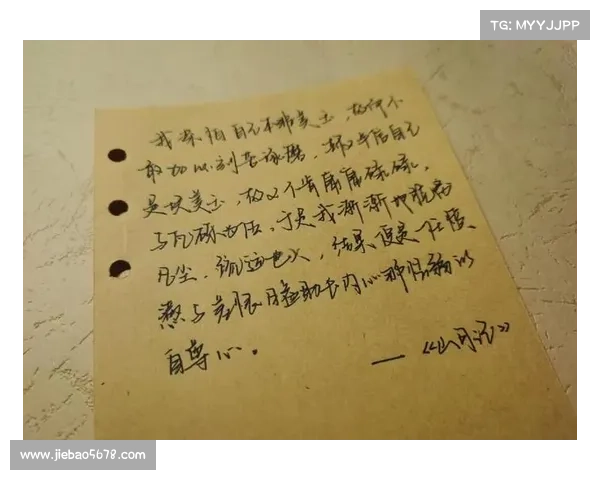 TG: MYYJJPP
我深怕自己不非美玉，故而不
敢加以刻苦琢磨，却又半信自己
是块美玉，故又不肯庸庸碌碌，
与瓦砾为伍，于是我渐渐地脱离
凡尘，疏远世人，结果便是一任愤
懑与羞恨日益助长内心那怯弱的
自尊心。
——《山月记》
www.jiebao5678.com